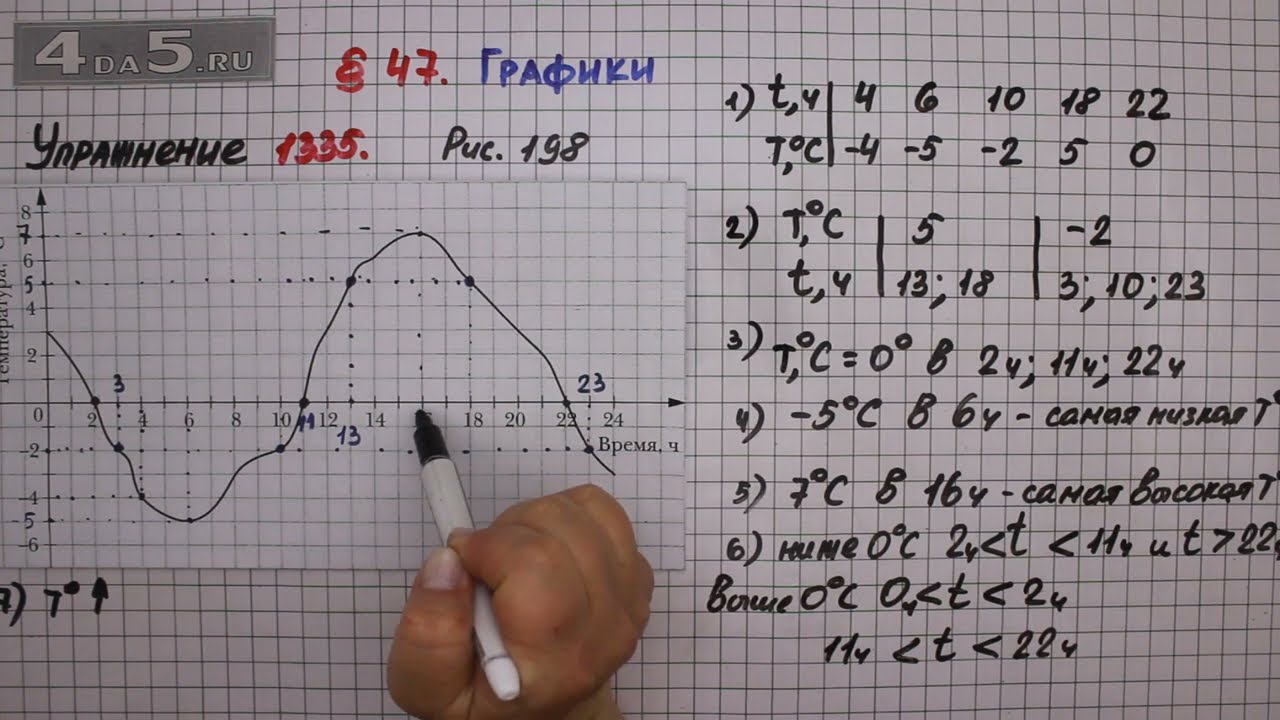 4DA5.RU
§ 47. Графики
Упражнение 1335. Рис. 198
8
7
6
5
4
2
0
-2
-4
-5
-6
2 3 4 6 8 10 11 12 13 14 18 20 22 23 24
Время, ч
1) t,ч | 4 6 10 18 22
T,°C | -4 -5 -2 5 0
2) T,°C | 5 | -2
t,ч | 13; 18 | 3; 10; 23
3) T,°C = 0° в 2ч; 11ч; 22ч
4) -5°C в 6ч - самая низкая T
5) 7°C в 16ч - самая высокая T
6) ниже 0°C 2ч < t < 11ч и t > 22
Выше 0°C 0ч < t < 2ч
11ч < t < 22ч
7) T° ↑